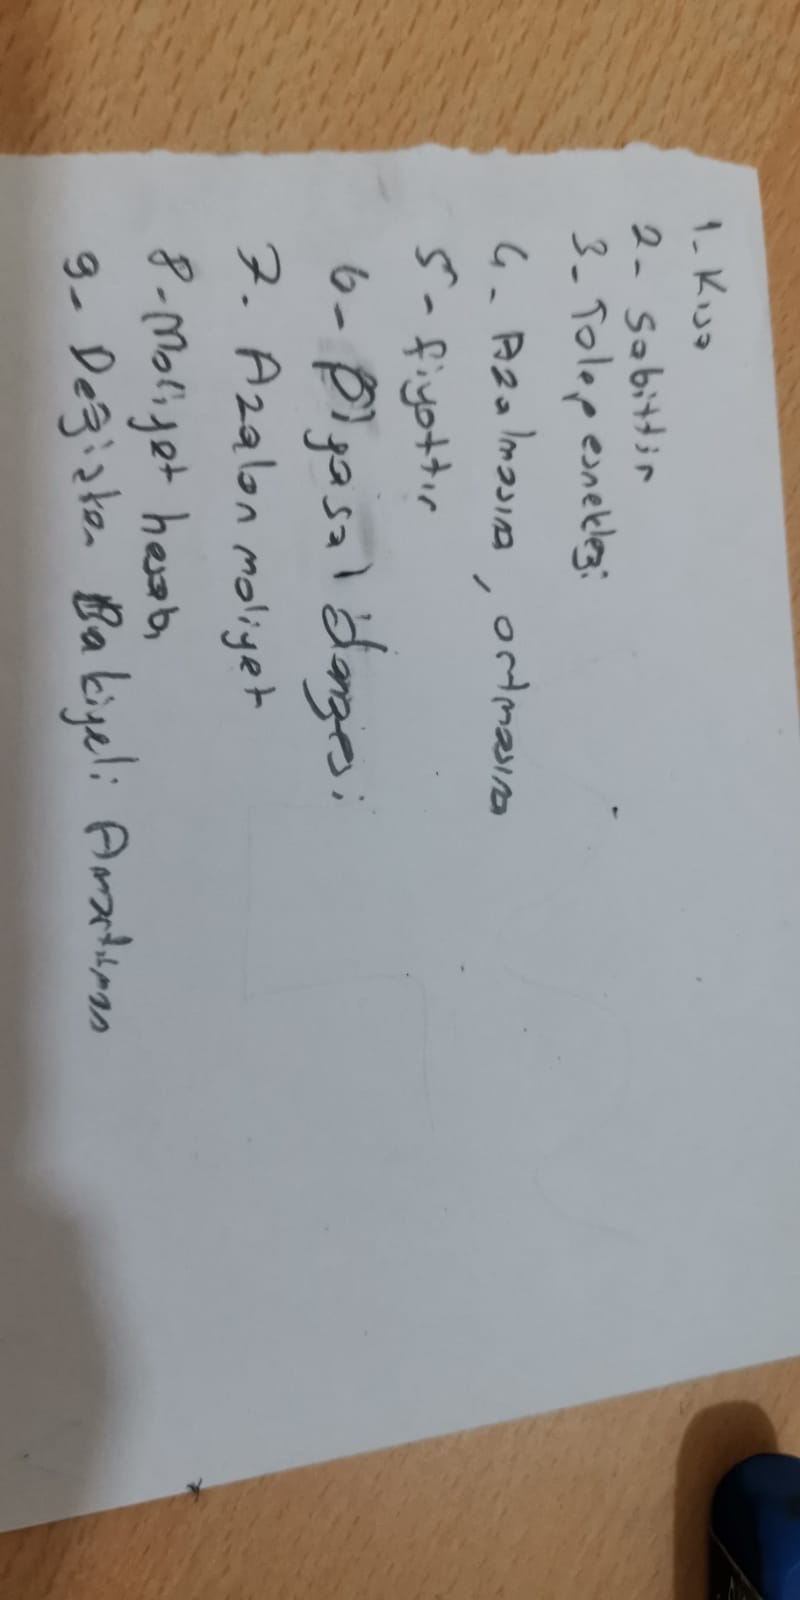 1- Kısa
2- Sabittir
3- Talep esnekleği
4- Azalmasına, artmasına
5- fiyattır
6- Piyasal dengesi
7. Azalan maliyet
8- Maliyet hesabı
9- Değişken Bakiyeli